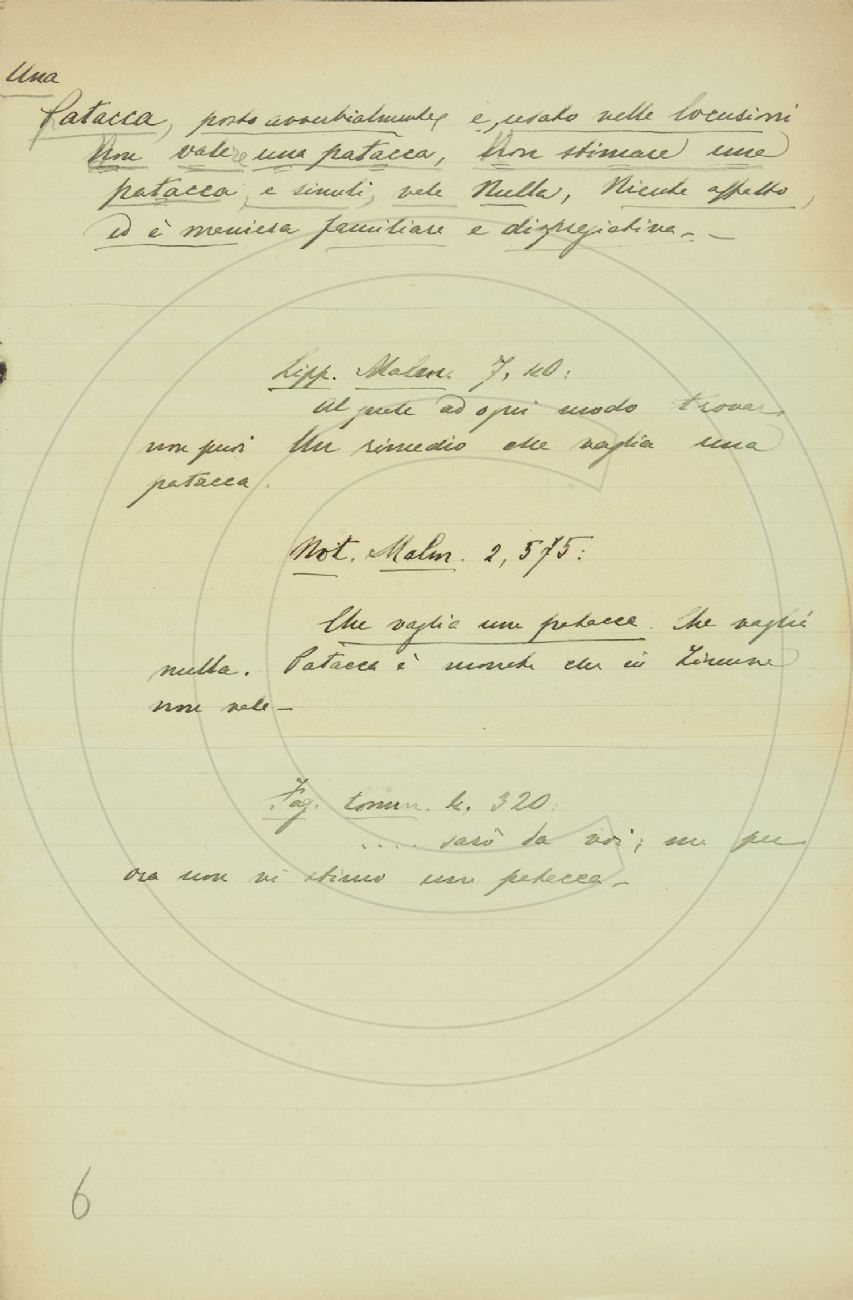 Una
Patacca, posto avverbialmente, e usato nelle locuzioni
Non valere una patacca, Non stimare una
patacca, e simili, vale Nulla, Niente affatto,
ed è maniera familiare e dispregiativa. —
Lipp. Malm. 7, 40:
nè ad ogni modo trovar
non puoi Un rimedio che vaglia una
patacca.
Not. Malm. 2, 575:
Che vaglia una patacca. Che vaglia
nulla. Patacca è moneta che in Firenze
non vale —
Fag. Comm. 320:
.... sarò da voi; ma per
ora non vi stimo una patacca —
6